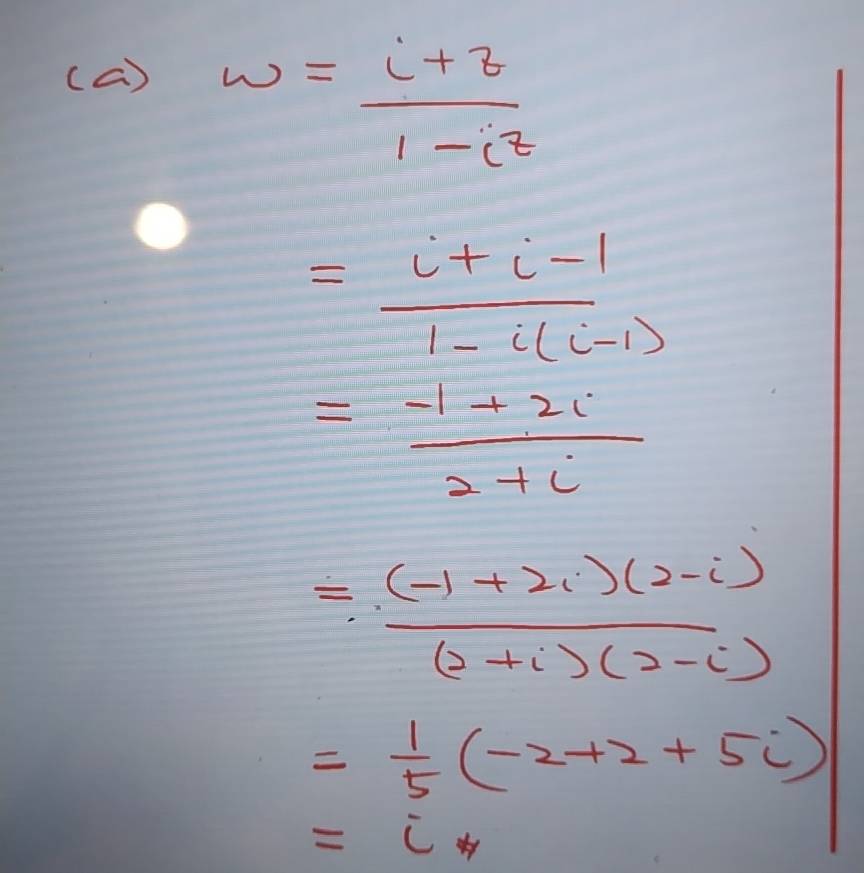 (a) w = (i + z)/(1 - iz)
= (i + i - 1)/(1 - i(i-1))
= (-1 + 2i)/(2 + i)
= ((-1 + 2i)(2-i))/((2 + i)(2-i))
= 1/5 (-2 + 2 + 5i)
= i #